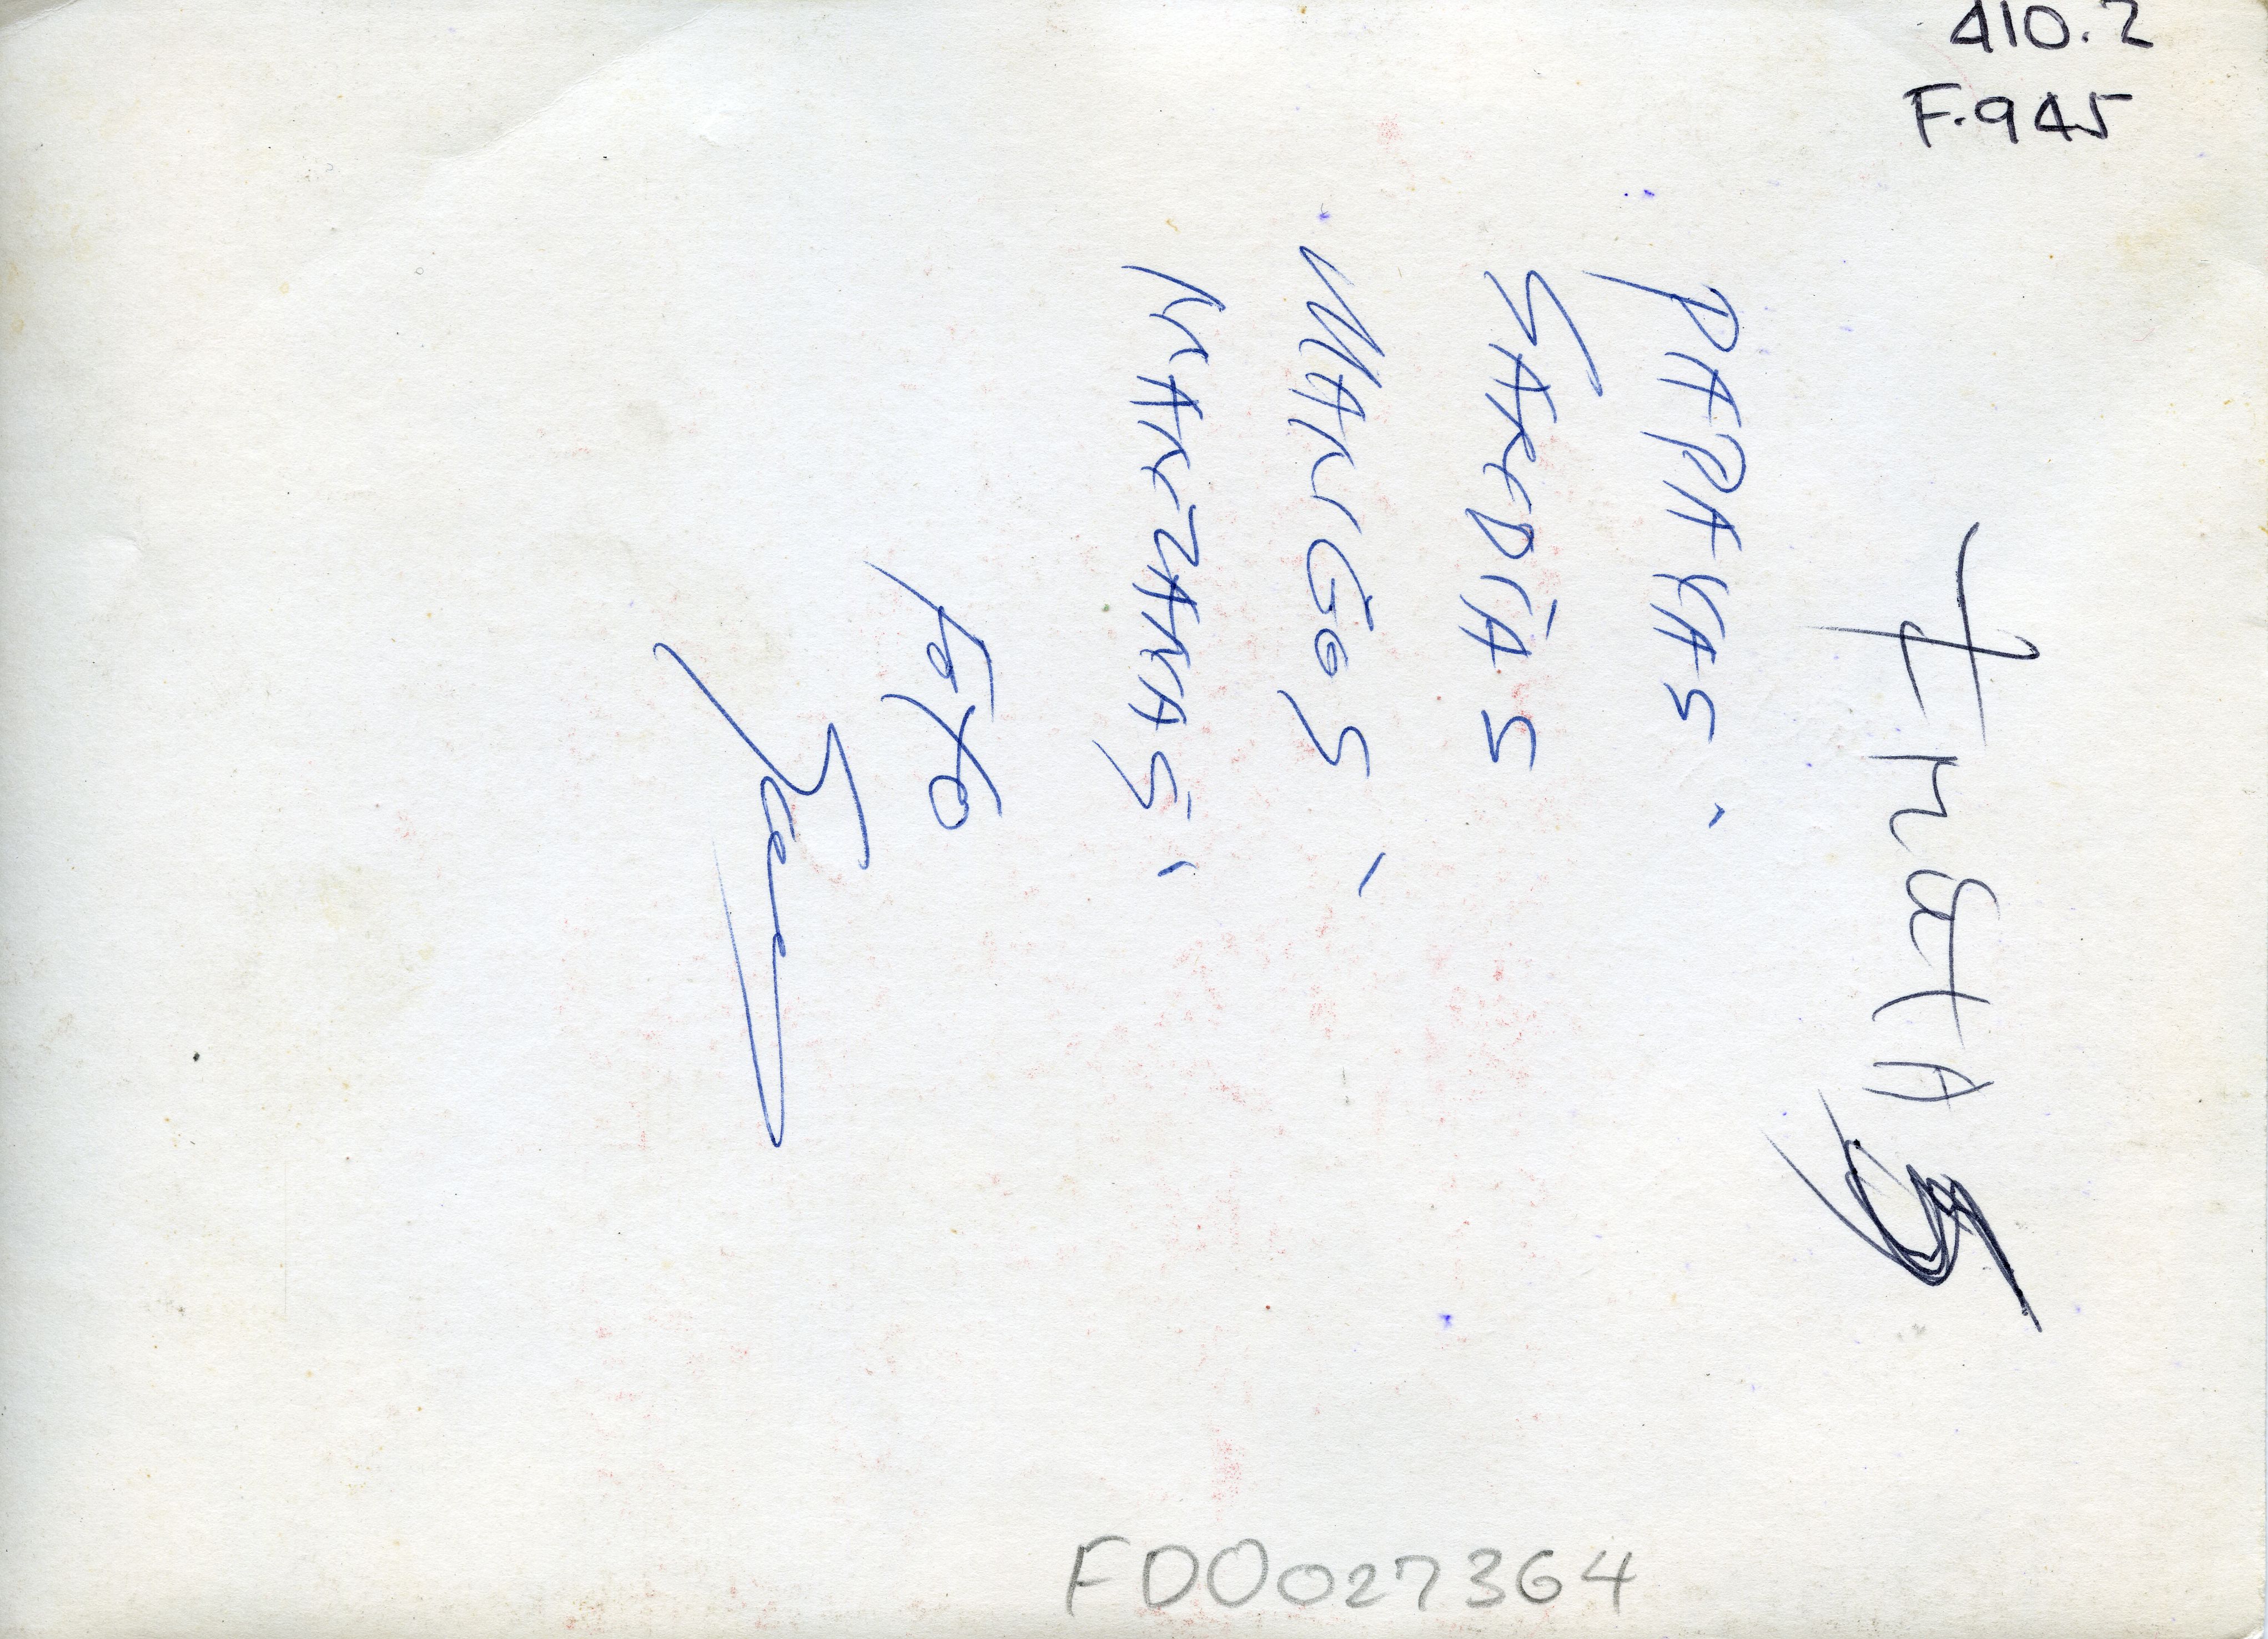 410.2
F.945
FrutAS
PAPAYAS,
SANDÍAS
MANGOS,
MANZANAS,
Foto
FD0027364